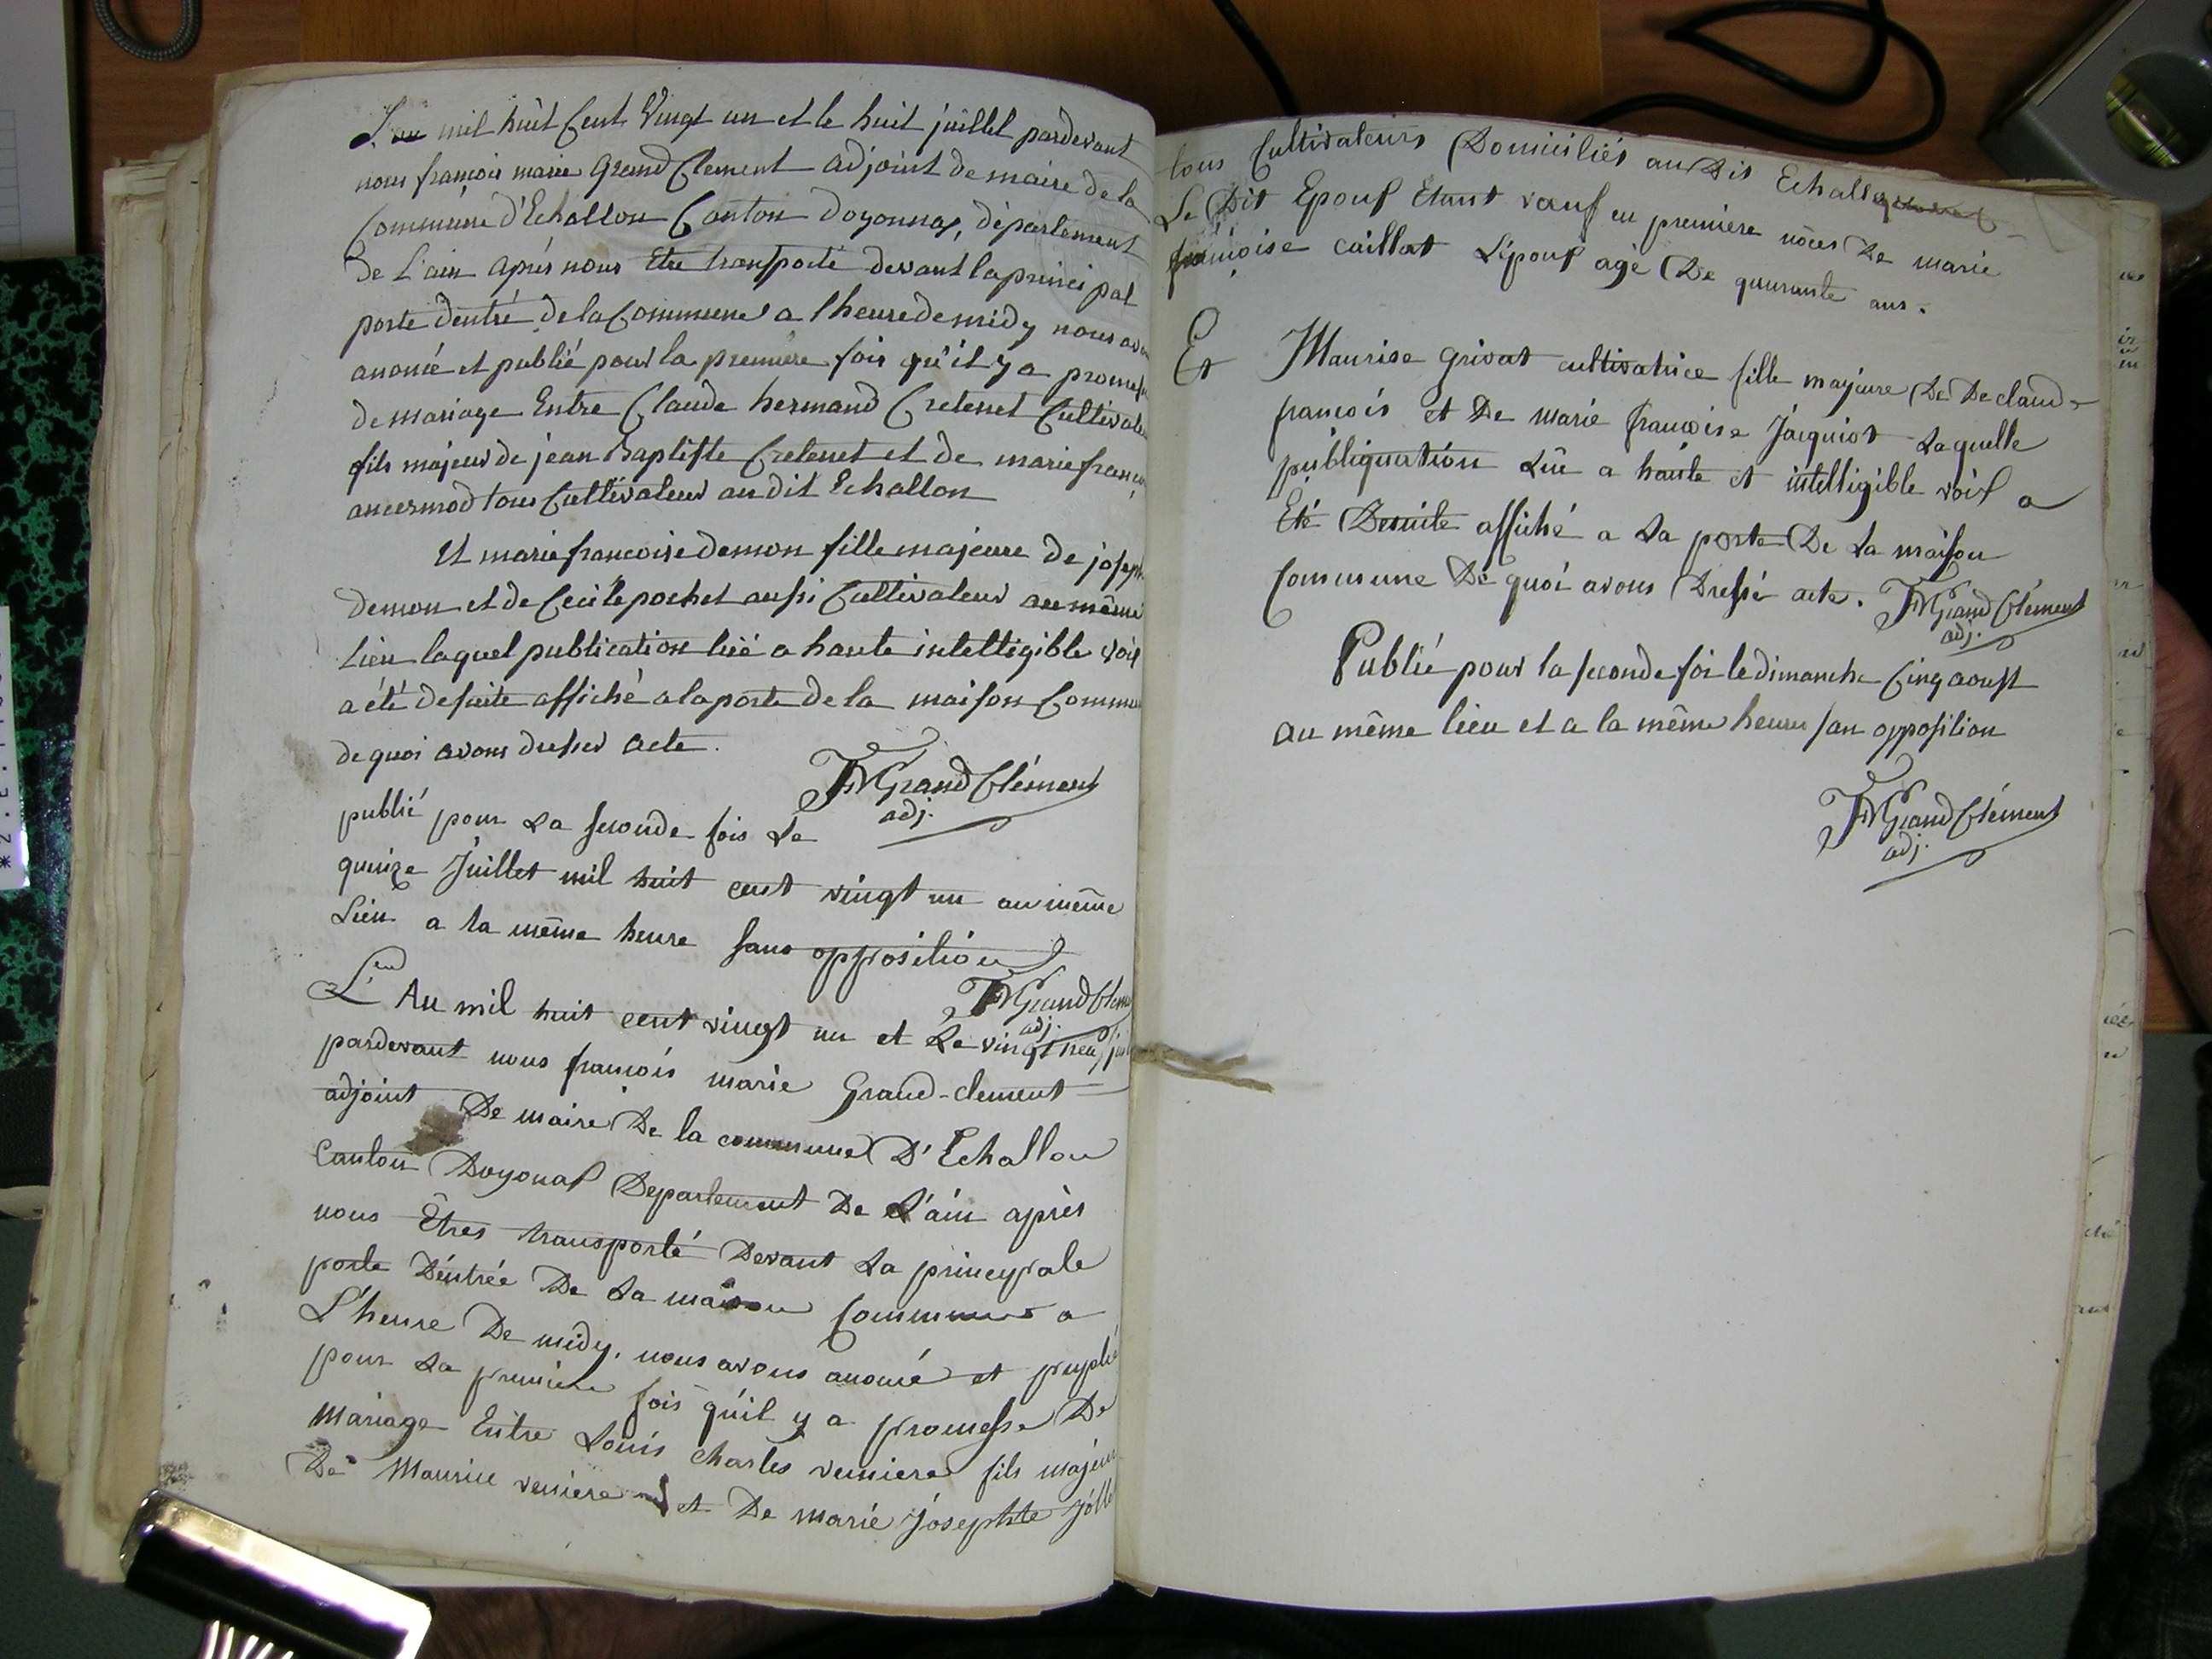 L'an mil huit Cent Vingt un et le huit juillet pardevant
nous françois marie Grand Clement adjoint de maire de la
Commune d'Echallon Canton doyonnax, département
de L'ain après nous Etre transporté devant la princi pal
porte dentré de la Commune a lheure de midy nous avo
anoncé et publié pour la premiere fois qu'il y a promess
de mariage Entre Claude hermand Cretenet Cultivate
fils majeur de jean Baptiste Cretenet et de marie franço
ancermod tous Cultivateur au dit Echallon
Et marie francoise demon fille majeure de joseph
demon et de Cecile pochet aussi Cultivateur au même
Lieu laquel publication lué a haute intelligible voix
a été desuite affiché a la porte de la maison Commu
de quoi avons dresser acte.
FMGrandClément
adj.
publié pour La seconde fois Le
quinze Juillet mil huit cent vingt un au même
Lieu a la même heure sans opposition
FMGrandClém
adj.
L'an An mil huit cent vingt un et Le vingt neuf juil
pardevant nous françois marie Grand-clement
adjoint De maire De la commune D'Echallon
Canton Doyonas Departement De L'ain après
nous Êtres transporté Devant La princypale
porte D'entrée De La maison Commune a
L'heure De midy. nous avons anoncé et puplié
pour La premiere fois qu'il y a promesse De
Mariage Entre Louis charles verniere fils majeur
De Maurice verniere et De marie Josephte Joll
tous Cultivateurs Domiciliés audit Echall
Le Dit Epoux Etant veuf en premiere nôces De marie
françoise caillat L'époux agé De quarante ans.
Et Maurise grivat cultivatrice fille majeure De De claude
francois et De marie françoise Jacquiot Laquelle
publiquation Lûe a haute et intelligible voix a
Eté Desuite affiché a La porte De La maison
Commune De quoi avons Dressé acte. FMGrandClément
adj.
Publié pour la seconde foi le dimanche Cinq aoust
au même lieu et a la même heure san opposition
FMGrandClément
adj.